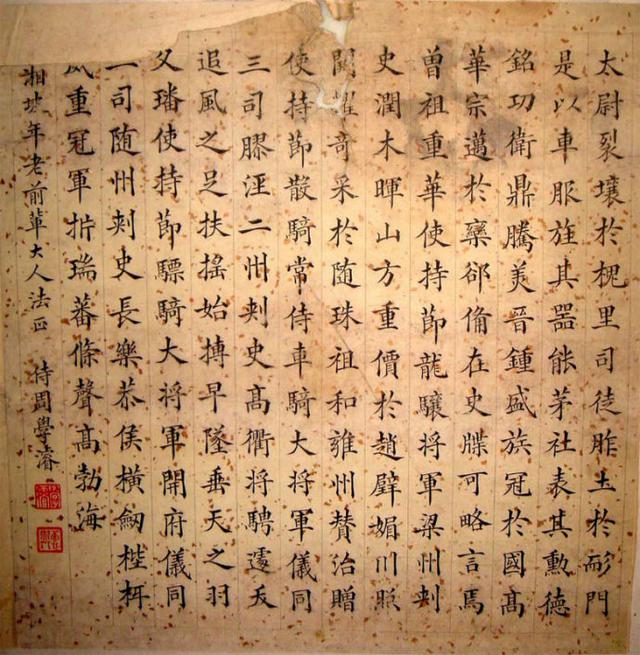 太尉裂壤於槐里司徒胙土於耏門
是以車服旌其器能茅社表其勳德
銘功衛鼎騰美晉鍾盛族冠於國髙
華宗邁於欒郤俻在史牒可略言焉
曾祖重華使持節龍驤将軍梁州刾
史潤木暉山方重價於趙璧媚川照
闕耀奇采於随珠祖和雍州賛治贈
使持節散騎常侍車騎大将軍儀同
三司膠涇二州刾史髙衢将騁遽夭
追風之足扶搖始摶早墜垂天之羽
父璠使持節驃騎大将軍開府儀同
三司随州刾史長樂恭侯橫劒
威重冠軍析瑞蕃條聲髙勃海
湘坡年老前輩大人法正 侍周學濬